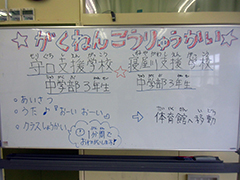 ☆がくねんごうりゅうかい☆
守口支援学校 ☆ 寝屋川支援学校
中学部3年生 中学部3年生
○あいさつ
○うた♪「おーいおーい」
○クラスしょうかい
⇨体育館へ移動